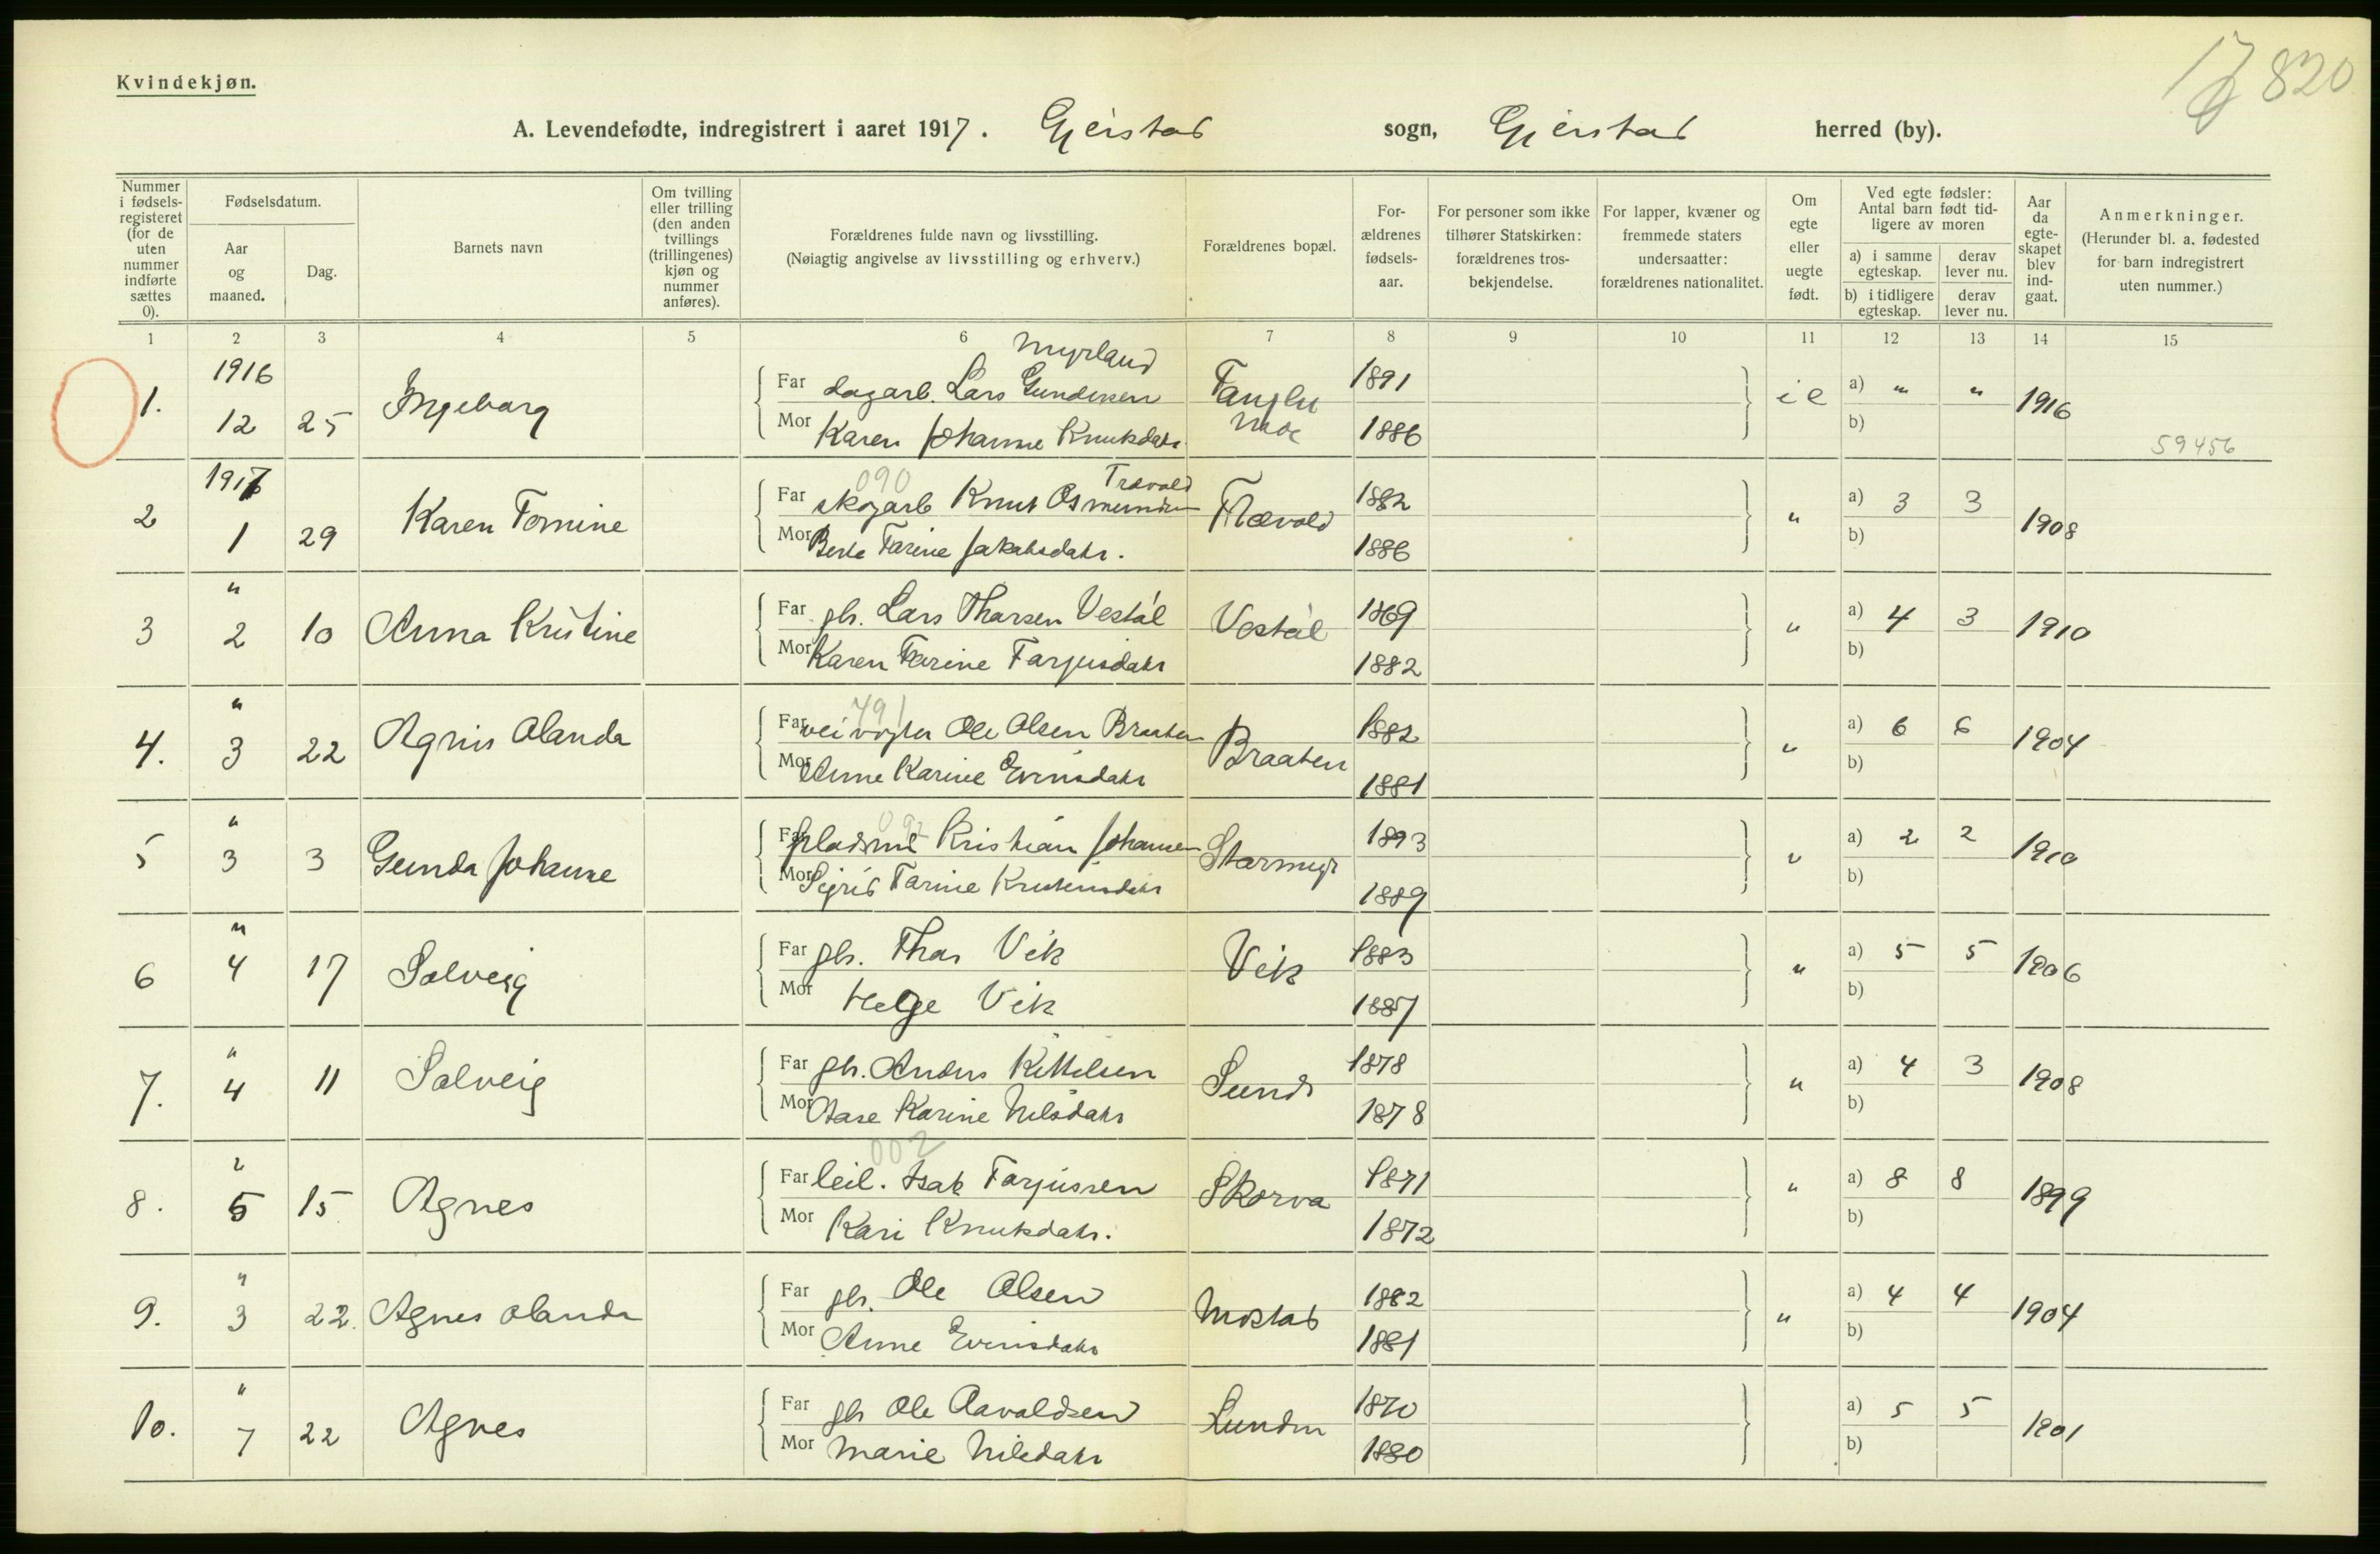 820
Kvindekjøn.
A. Levendefødte, indregistrert i aaret 1917. Gjerstad sogn, Gjerstad herred (by).
Nummer i fødselsregisteret (for de uten nummer indførte sættes 0).
Fødselsdatum.
Aar og maaned.
Dag.
Barnets navn
Om tvilling eller trilling (den anden tvillings (trillingenes) kjøn og nummer anføres).
Forældrenes fulde navn og livsstilling.
(Nøiagtig angivelse av livsstilling og erhverv.)
Forældrenes bopæl.
Forældrenes fødselsaar.
For personer som ikke tilhører Statskirken: forældrenes trosbekjendelse.
For lapper, kvæner og fremmede staters undersaatter: forældrenes nationalitet.
Om egte eller uegte født.
Ved egte fødsler: Antal barn født tidligere av moren
a) i samme egteskap. derav lever nu.
b) i tidligere egteskap. derav lever nu.
Aar da egteskapet blev indgaat.
Anmerkninger.
(Herunder bl. a. fødested for barn indregistrert uten nummer.)
1 2 3 4 5 6 7 8 9 10 11 12 13 14 15
Myrland
1. 1916 12 25 Ingeborg Far dagarb. Lars Gundersen 1891 a) " " 1916
Mor Karen Johanne Knutsdatr. Moe 1886 b)
59456
090 Trævold
2 1917 1 29 Karen Tomine Far skogarb Knut Osmundsen Trævold 1882 " a) 3 3 1908
Mor Berte Tarine Jakobsdatr. 1886 b)
3 " 2 10 Anna Kristine Far gbr. Lars Thorsen Vestøl Vestøl 1869 " a) 4 3 1910
Mor Karen Tarine Tarjusdatr 1882 b)
791
4. " 3 22 Agnes Olanda Far veivogter Ole Olsen Braaten Braaten 1882 " a) 6 6 1904
Mor Anne Karine Evensdatr 1881 b)
092
5 " 3 3 Gunda Johanne Far pladsmd Kristian Johansen Stormyr 1893 " a) 2 2 1910
Mor Sigrid Tarine 1889 b)
6 " 4 17 Solveig Far gbr. Thor Vik Vik 1883 " a) 5 5 1906
Mor Helge Vik 1887 b)
7. " 4 11 Solveig Far gbr. Anders Kittelsen Sunde 1878 " a) 4 3 1908
Mor Aase Karine Nilsdatr 1878 b)
002
8. " 5 15 Agnes Far leil. Isak Tarjussen Skorva 1871 " a) 8 8 1899
Mor Kari Knutsdatr. 1872 b)
9. " 3 22. Agnes Olanda Far gbr. Ole Olsen Mostad 1882 " a) 4 4 1904
Mor Anne Evensdatr 1881 b)
10. " 7 22 Agnes Far gbr Ole Aavoldsen Lunden 1870 a) 5 5 1901
Mor Marie Nilsdatr 1880 b)